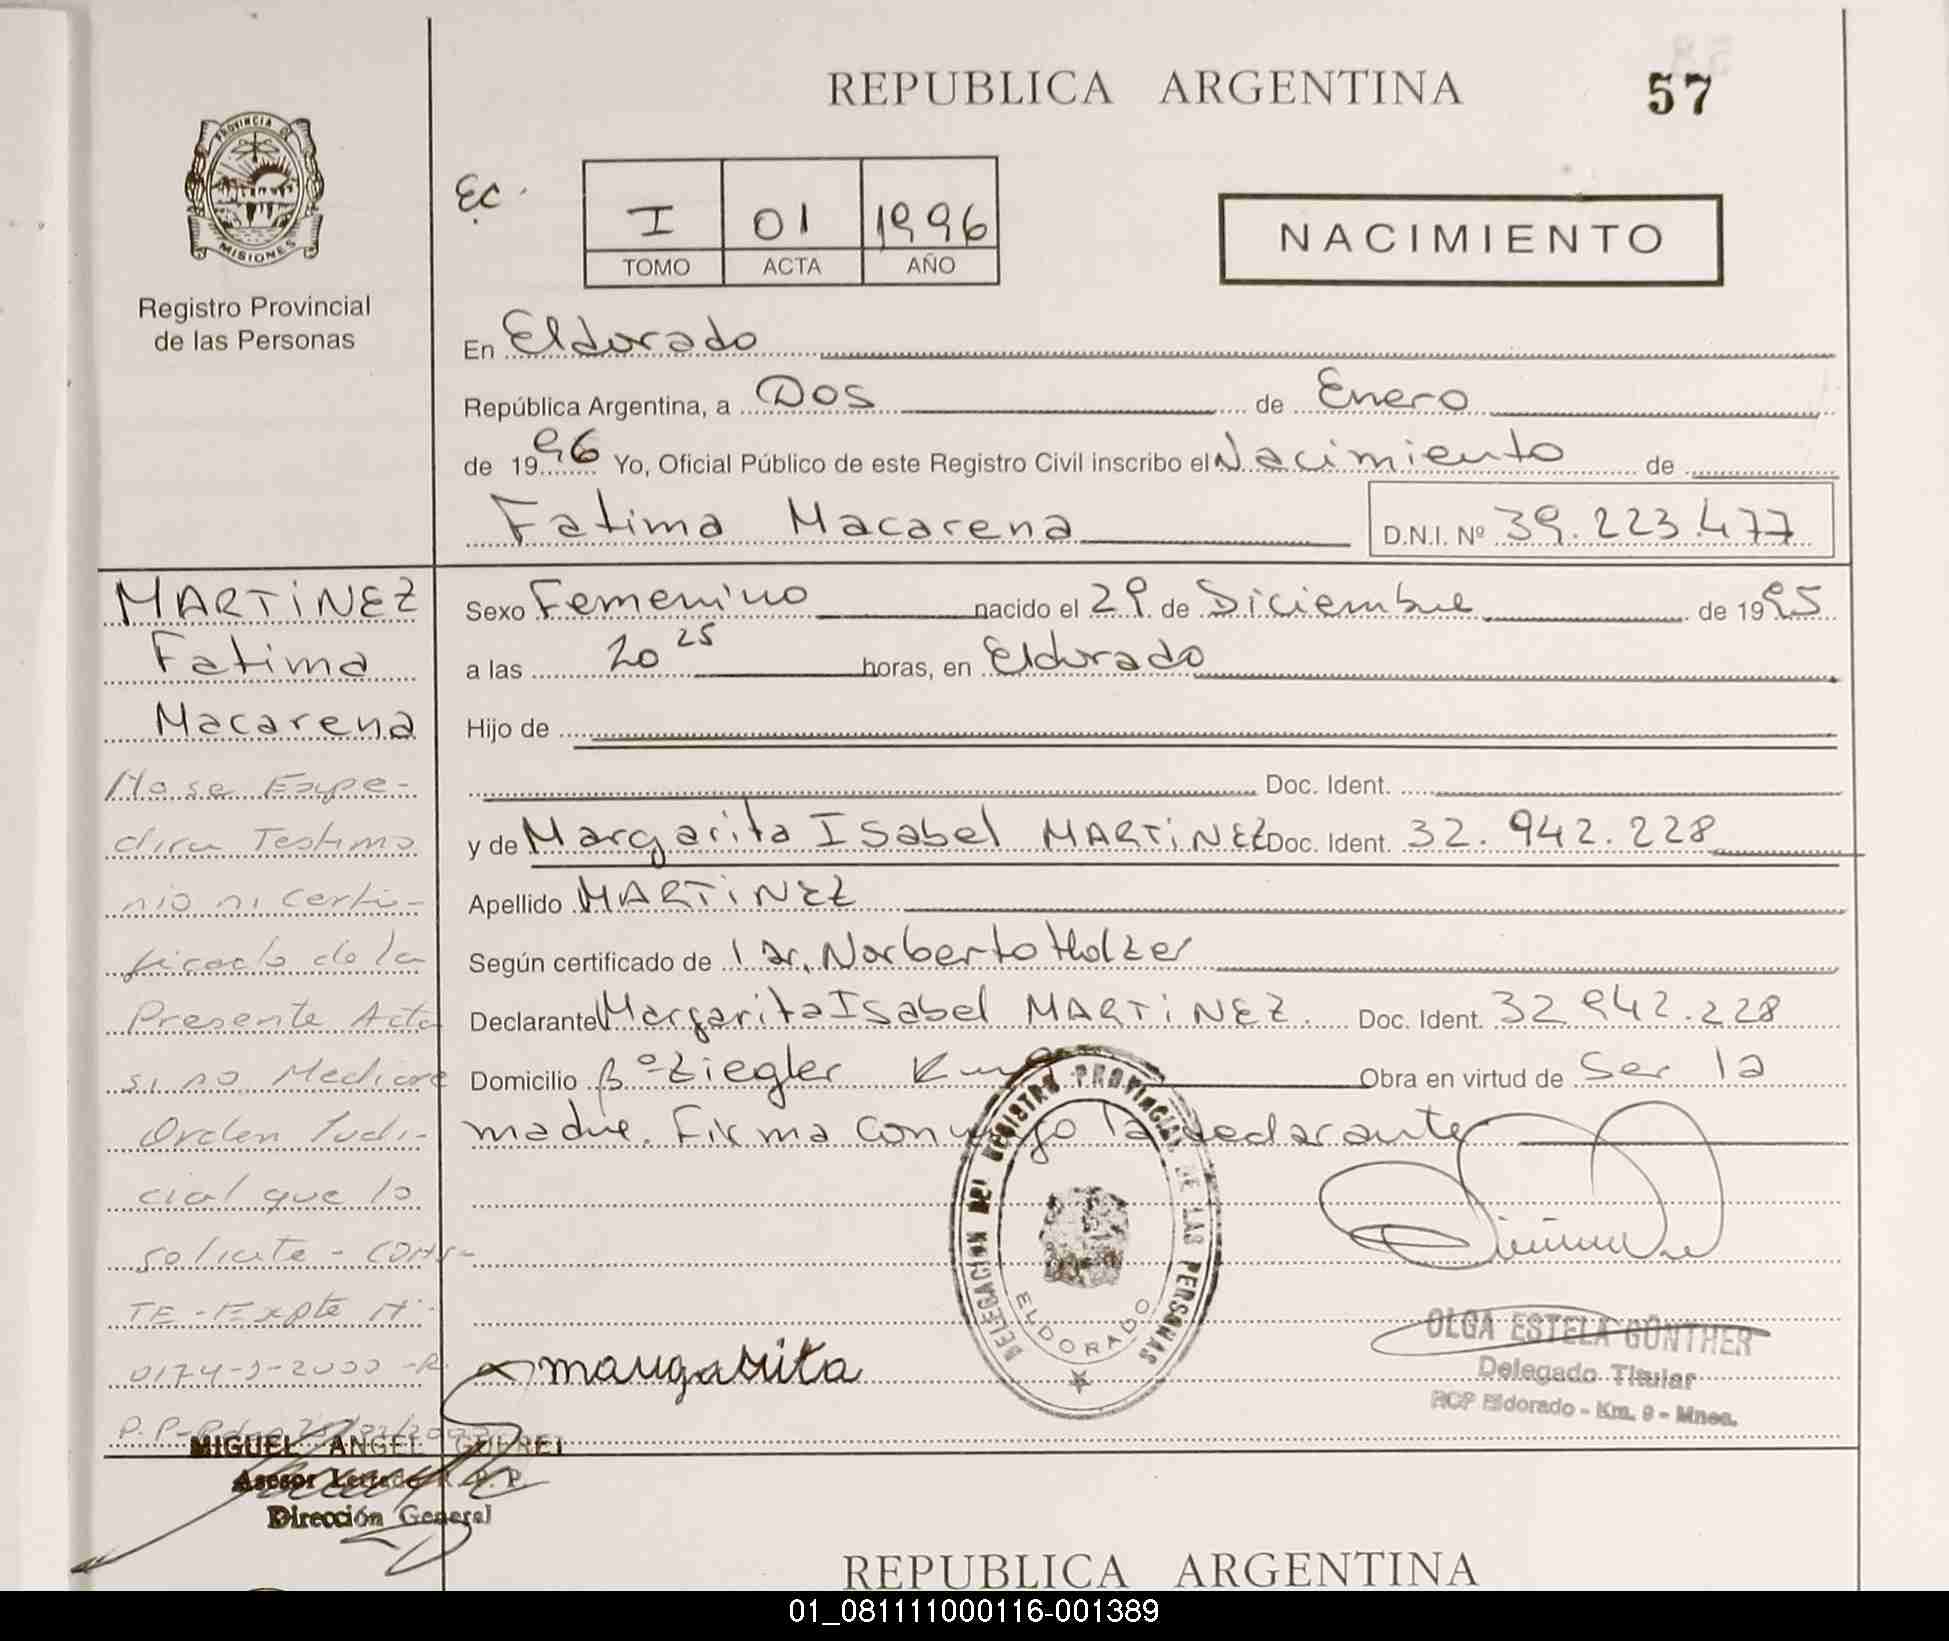 REPUBLICA ARGENTINA
57
PROVINCIA DE
MISIONES
Registro Provincial
de las Personas
EC.
I 01 1996
TOMO ACTA AÑO
NACIMIENTO
En Eldorado
República Argentina, a Dos de Enero
de 1996 Yo, Oficial Público de este Registro Civil inscribo el Nacimiento de
Fatima Macarena D.N.I. Nº 39.223.477
MARTiNEZ
Fatima
Macarena
No se Expe-
dira Testimo
nio ni Certi-
ficado de la
Presente Acta
si no Mediare
Orden Judi-
cial que lo
solicite - CONS-
TE - Expte Nº
0174-J-2000 - R.
P.P-
MIGUEL ANGEL
Asesor Letrado R. P. P.
Dirección General
Sexo Femenino nacido el 29 de Diciembre de 1995
a las 20 25 horas, en Eldorado
Hijo de
Doc. Ident.
y de Margarita Isabel MARTiNEZ Doc. Ident. 32.942.228
Apellido MARTiNEZ
Según certificado de Dr. Norberto Holzer
Declarante Margarita Isabel MARTiNEZ. Doc. Ident. 32.942.228
Domicilio Bº Ziegler Km Obra en virtud de Ser la
madre. Firma conmigo la declarante
DELEGACION DEL REGISTRO PROVINCIAL DE LAS PERSONAS
ELDORADO
margarita
OLGA ESTELA GÜNTHER
Delegado Titular
RCP Eldorado - Km. 9 - Mnes.
REPUBLICA ARGENTINA
01_081111000116-001389